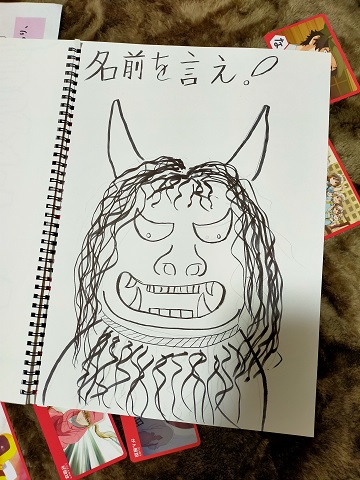 名前を言え。
な